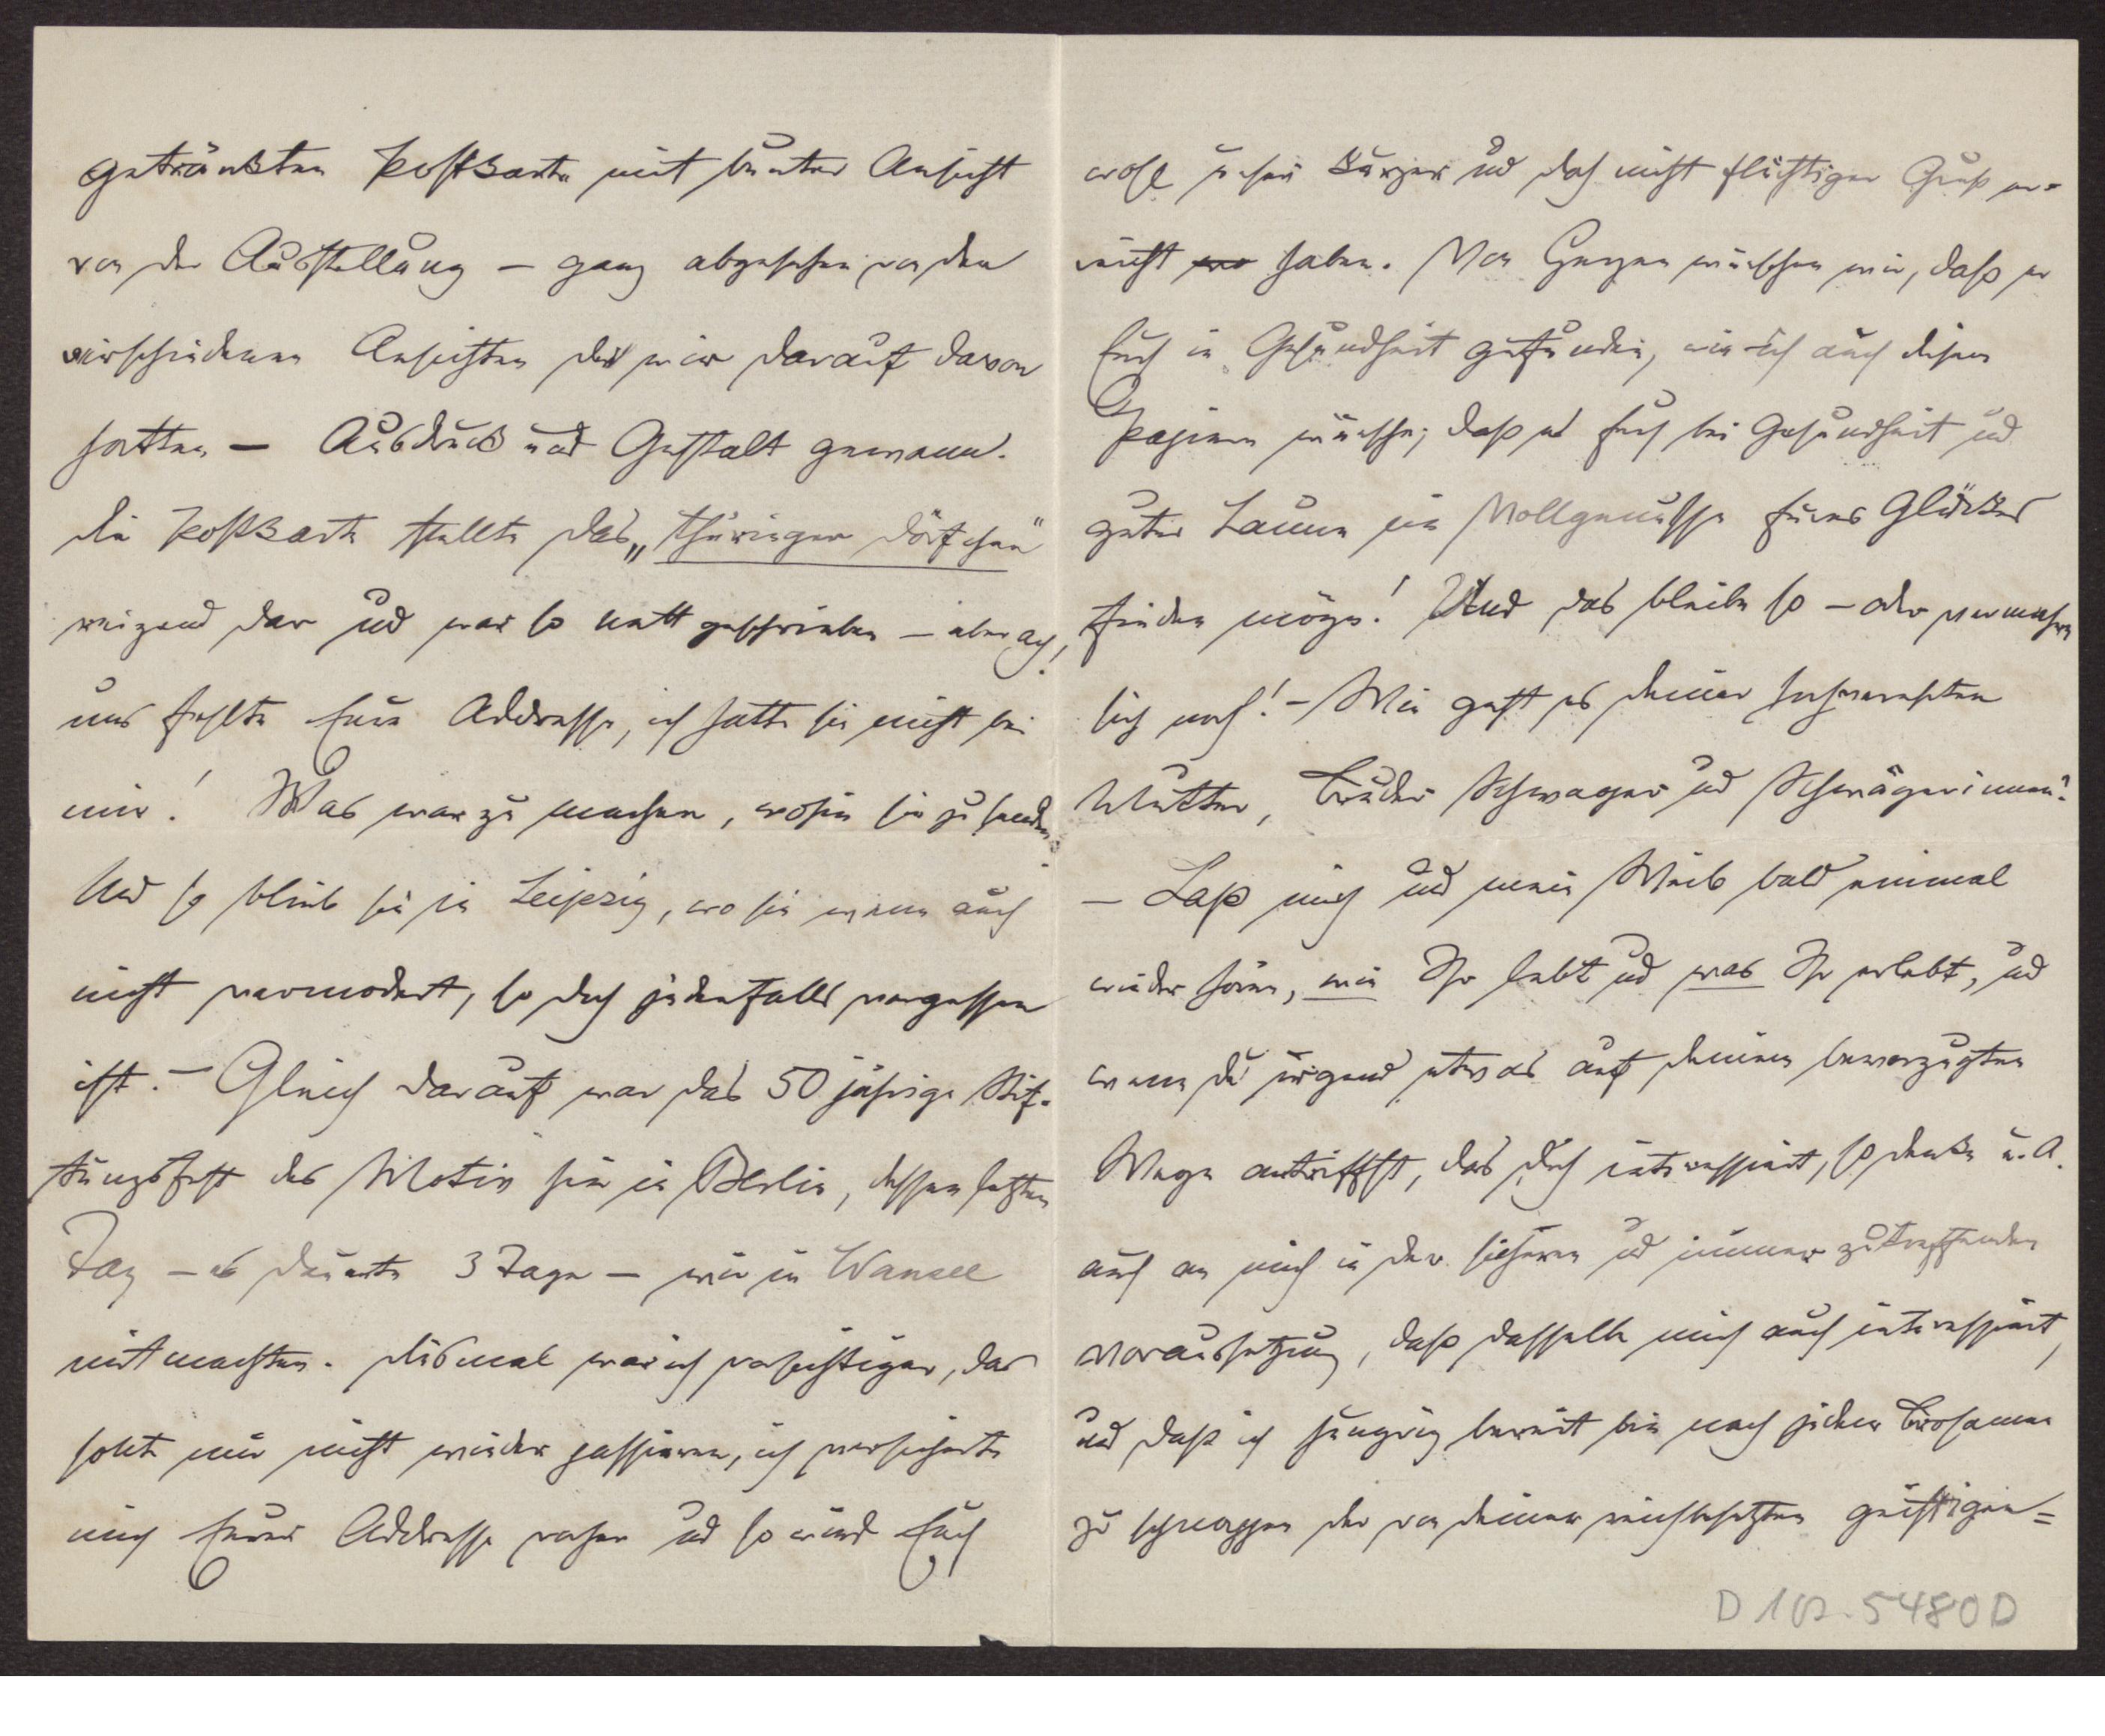 getränkten Postkarte mit bunter Ansicht
von der Ausstellung — ganz abgesehen von den
verschiedenen Ansichten die wir darauf davon
hatten — Ausdruck und Gestalt gewann.
die Postkarte stellte das „Thüringer Dörfchen"
reizend dar und war so nett geschrieben — aber ach,!
uns fehlte Eure Addresse, ich hatte sie nicht bei
mir! Was war zu machen, wohin sie zu senden
Und so blieb sie in Leipzig, wo sie wenn auch
nicht vermodert, so doch jedenfalls vergessen
ist. — Gleich darauf war das 50 jährige Stif-
tungsfest des Motiv hier in Berlin, dessen letzten
Tag — es dauerte 3 Tage — wir in Wansee
mitmachten. Diesmal war ich vorsichtiger, das
sollte mir nicht wieder passieren, ich versicherte
mich Eurer Addresse vorher und so wird Euch
wohl unser kurzer und doch nicht flüchtiger Gruß er-
reicht haben. Von Herzen wünschen wir, daß er
Euch in Gesundheit gefunden, wie ich auch diesem
Papiere wünsche, daß es Euch bei Gesundheit und
guter Laune im Vollgenusse Eures Glückes
finden möge! Und das bleibe so — oder vermehre
sich noch! — Wie geht es deiner hochverehrten
Mutter, Bruder Schwager und Schwägerinnen?
— Laß mich und mein Weib bald einmal
wieder hören, wie Ihr lebt und was Ihr erlebt, und
wenn du irgend etwas auf deinem bevorzugten
Wege antriffst, das dich interessiert, so denke u. A.
auch an mich in der sicheren und immer zutreffenden
Voraussetzung, daß dasselbe mich auch interessiert,
und daß ich hungrig bereit bin nach jedem Brosamen
zu schnappen der von deiner reichbesetzten geistigen=
D 102. 5480 D